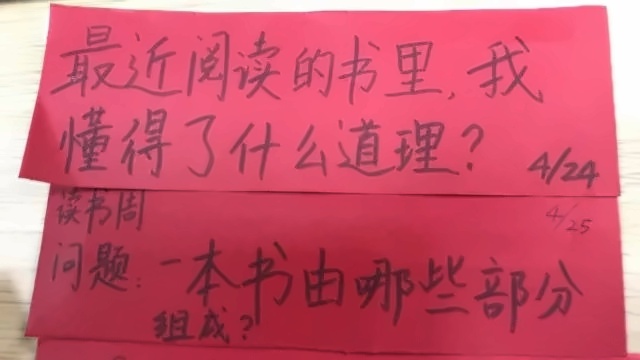 最近阅读的书里,我
懂得了什么道理?
4/24
读书周
4/25
问题:一本书由哪些部分
组成?